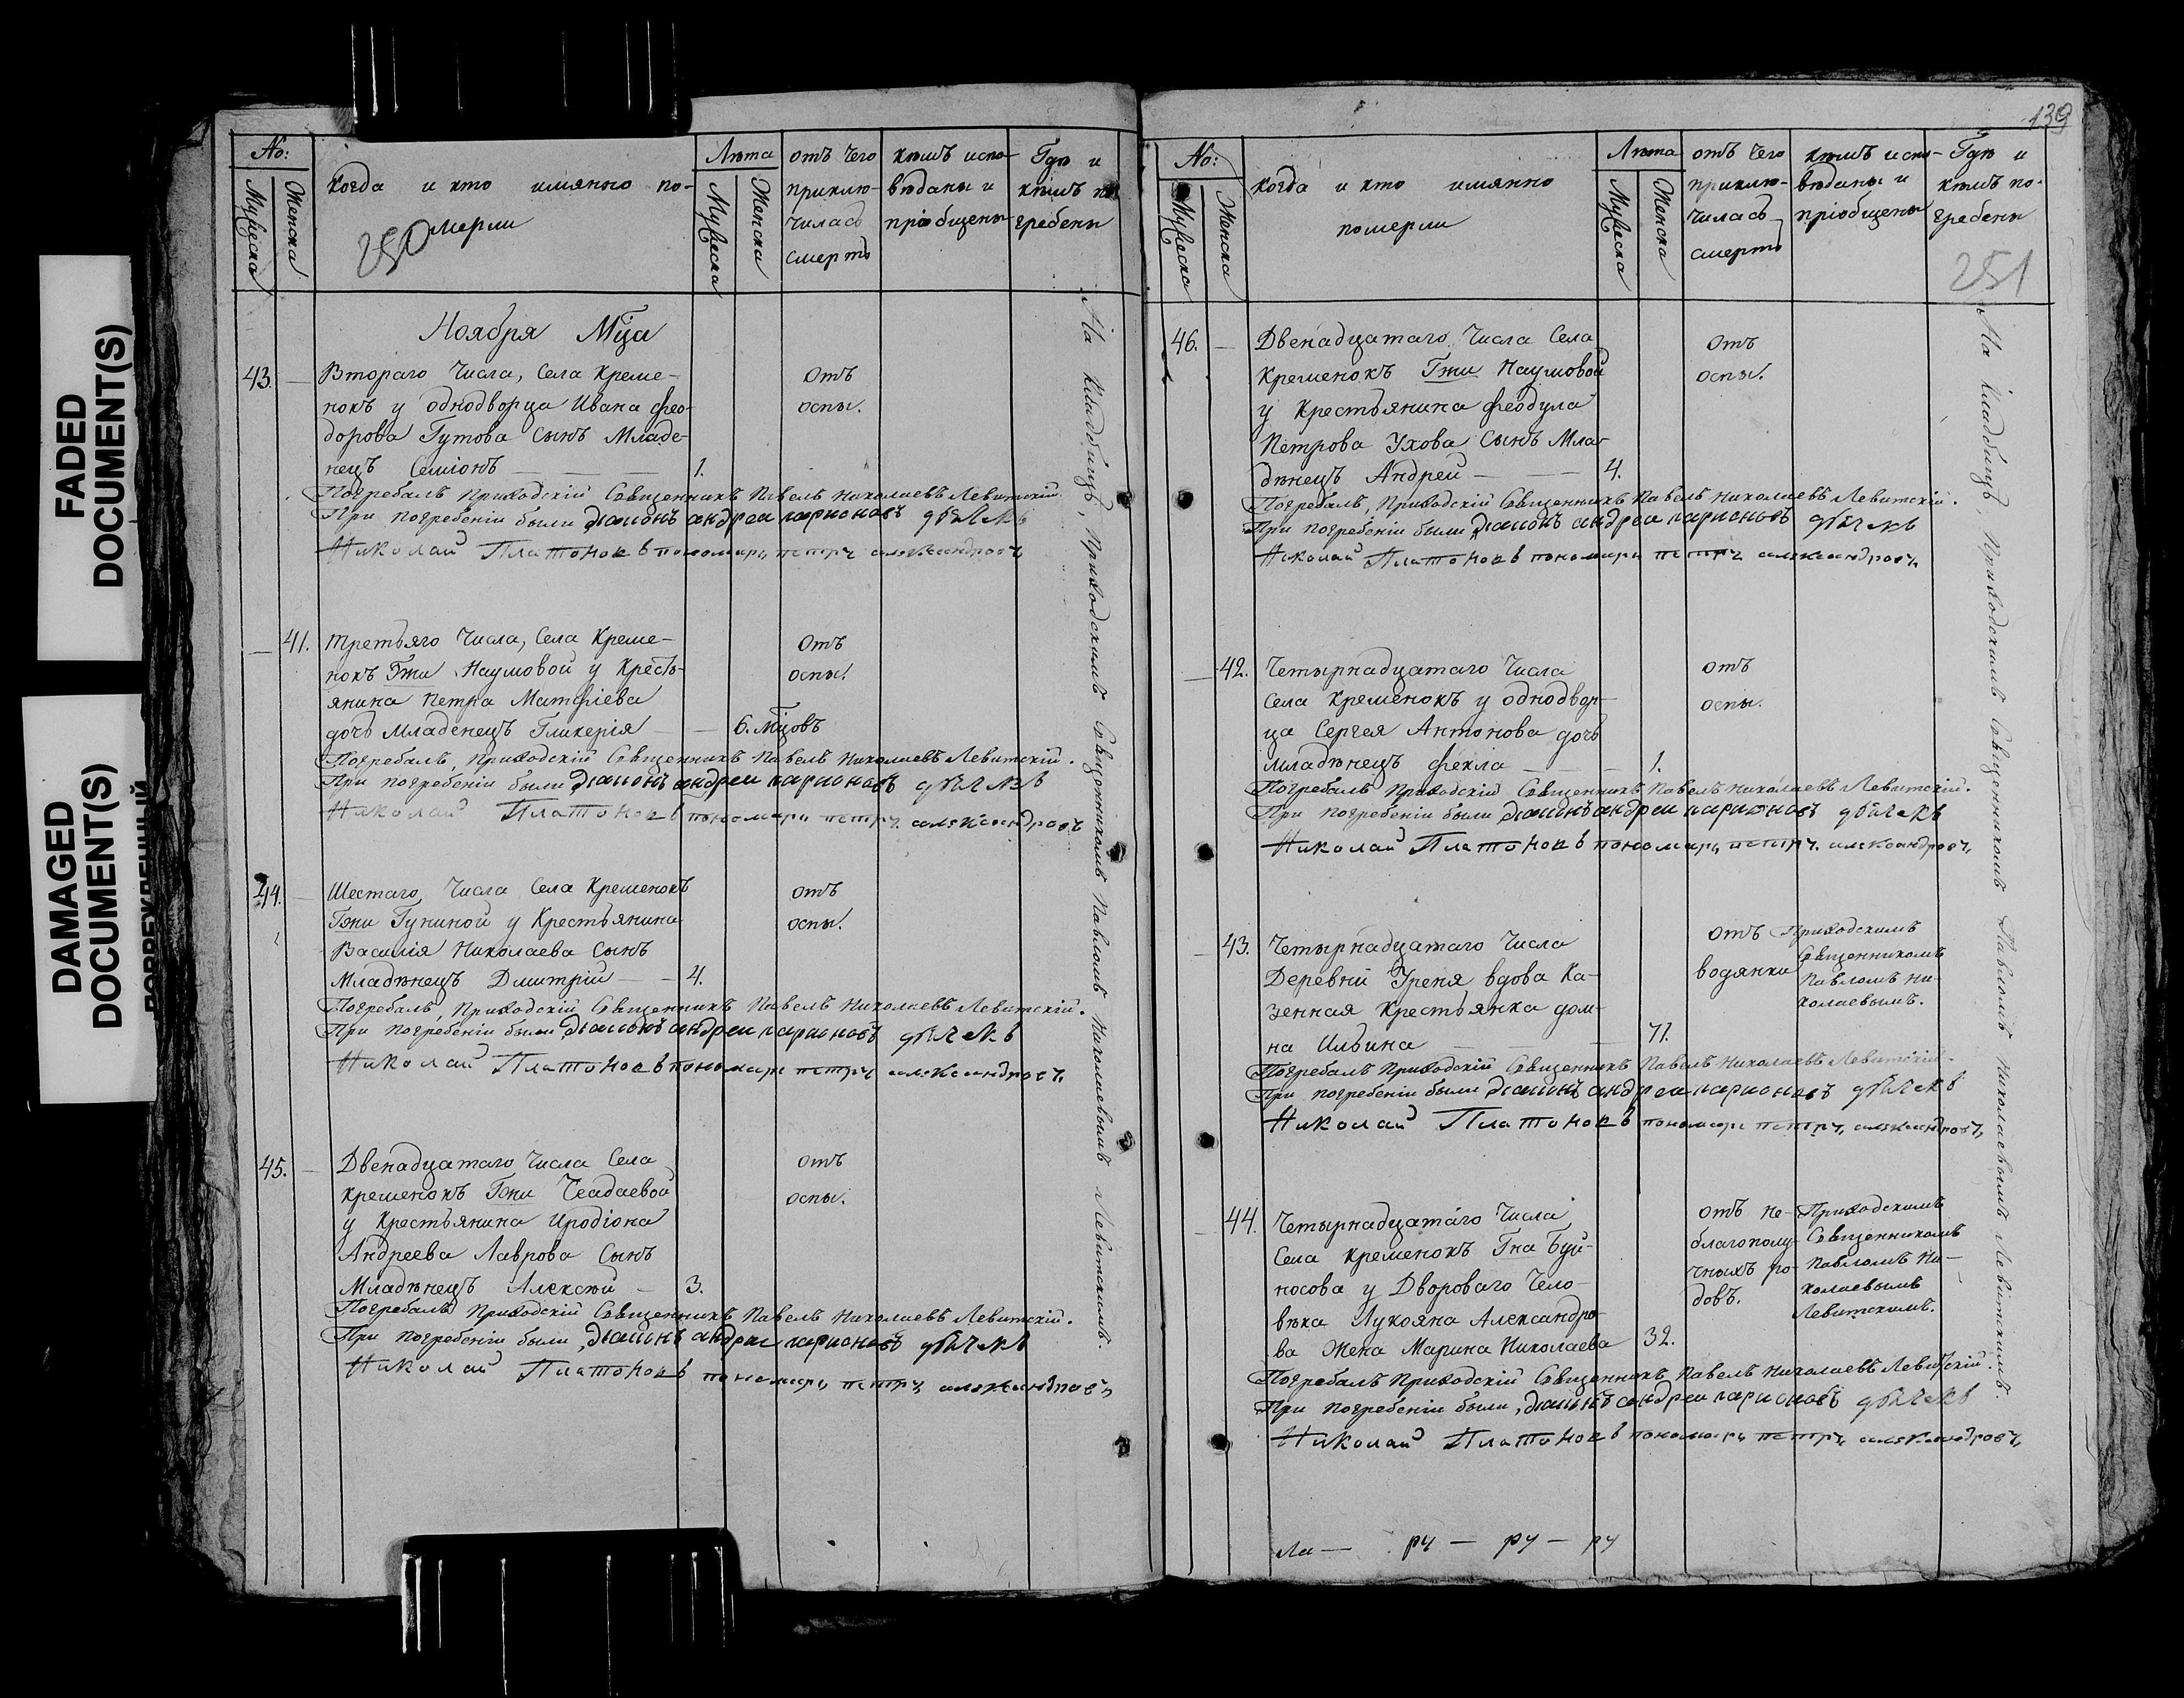 FADED
DOCUMENT(S)
DAMAGED
DOCUMENT(S)
ПОВРЕЖДЕННЫЙ
No:
Мужеска
Женска
Когда и кто имянно по-
мерли
250
Лѣта
Мужеска
Женска
отъ чего
приклю-
чилась
смерть
кѣмъ испо-
вѣданы и
пріобщены
Гдѣ и
кѣмъ по
гребены
Ноября Мца
43. Втораго Числа, Села Креме-
нокъ у однодворца Ивана Фео-
дорова Гутова Сынъ Младе-
нецъ Семіонъ 1.
отъ
оспы.
Погребалъ Приходскій Священникъ Павелъ Николаевъ Левитскій.
При погребеніи были діаконъ андреи ларионовъ дьячекъ
Николай Платоновъ пономарь петръ александровъ
41. Третьяго Числа, Села Креме-
нокъ Гжи Наумовой у Кресть-
янина Петра Матфіева
дочь Младенецъ Гликерія 6. Мцовъ
отъ
оспы.
Погребалъ, Приходскій Священникъ Павелъ Николаевъ Левитскій.
При погребеніи были діаконъ андреи ларионовъ дьячекъ
Николай Платоновъ пономарь петръ александровъ
44. Шестаго Числа Села Кременокъ
Гжи Гуниной у Крестьянина
Василія Николаева Сынъ
Младѣнецъ Дмитрій 4.
отъ
оспы.
Погребалъ, Приходскій Священникъ Павелъ Николаевъ Левитскій.
При погребеніи были діаконъ андреи ларионовъ дьячекъ
Николай Платоновъ пономарь петръ александровъ
45. Двенадцатаго Числа Села
Кременокъ Гжи Чеадаевой
у Крестьянина Иродіона
Андреева Лаврова Сынъ
Младѣнецъ Алексѣй 3.
отъ
оспы.
Погребалъ Приходскій Священникъ Павелъ Николаевъ Левитскій.
При погребеніи были, діаконъ андреи ларионовъ дьячекъ
Николай Платоновъ пономарь петръ александровъ
На Кладбищѣ, Приходскимъ Священникомъ Павломъ Николаевымъ Левитскимъ.
139
No:
Мужеска
Женска
Когда и кто имянно
померли
Лѣта
Мужеска
Женска
отъ чего
приклю-
чилась
смерть
кѣмъ испо-
вѣданы и
пріобщены
Гдѣ и
кѣмъ по-
гребены
251
46. Двенадцатаго Числа Села
Кременокъ Гжи Наумовой
у Крестьянина Феодула
Петрова Ухова Сынъ Мла-
дѣнецъ Андрей 4.
отъ
оспы.
Погребалъ, Приходскій Священникъ Павелъ Николаевъ Левитскій.
При погребеніи были діаконъ андреи ларионовъ дьячекъ
Николай Платоновъ пономарь петръ александровъ
42. Четырнадцатаго Числа
Села Кременокъ у однодвор-
ца Сергея Антонова дочь
младѣнецъ Фекла 1.
отъ
оспы.
Погребалъ Приходскій Священникъ Павелъ Николаевъ Левитскій.
При погребеніи были діаконъ андреи ларионовъ дьячекъ
Николай Платоновъ пономарь петръ александровъ
43. Четырнадцатаго Числа
Деревни Уреня вдова Ка-
зенная Крестьянка дом-
на Ильина 71.
отъ
водянки
Приходскимъ
Священникомъ
Павломъ Ни-
колаевымъ.
Погребалъ Приходскій Священникъ Павелъ Николаевъ Левитскій.
При погребеніи были діаконъ андреи ларионовъ дьячекъ
Николай Платоновъ пономарь петръ александровъ
44. Четырнадцатаго Числа
Села Кременокъ Гна Буй-
носова у Двороваго Чело-
вѣка Лукояна Александро-
ва Жена Марина Николаева 32.
отъ не-
благополу-
чныхъ ро-
довъ.
Приходскимъ
Священникомъ
Павломъ Ни-
колаевымъ
Левитскимъ.
Погребалъ Приходскій Священникъ Павелъ Николаевъ Левитскій.
При погребеніи были, діаконъ андреи ларионовъ дьячекъ
Николай Платоновъ пономарь петръ александровъ
Ла — ру — ру — ру
На Кладбищѣ, Приходскимъ Священникомъ Павломъ Николаевымъ Левитскимъ.